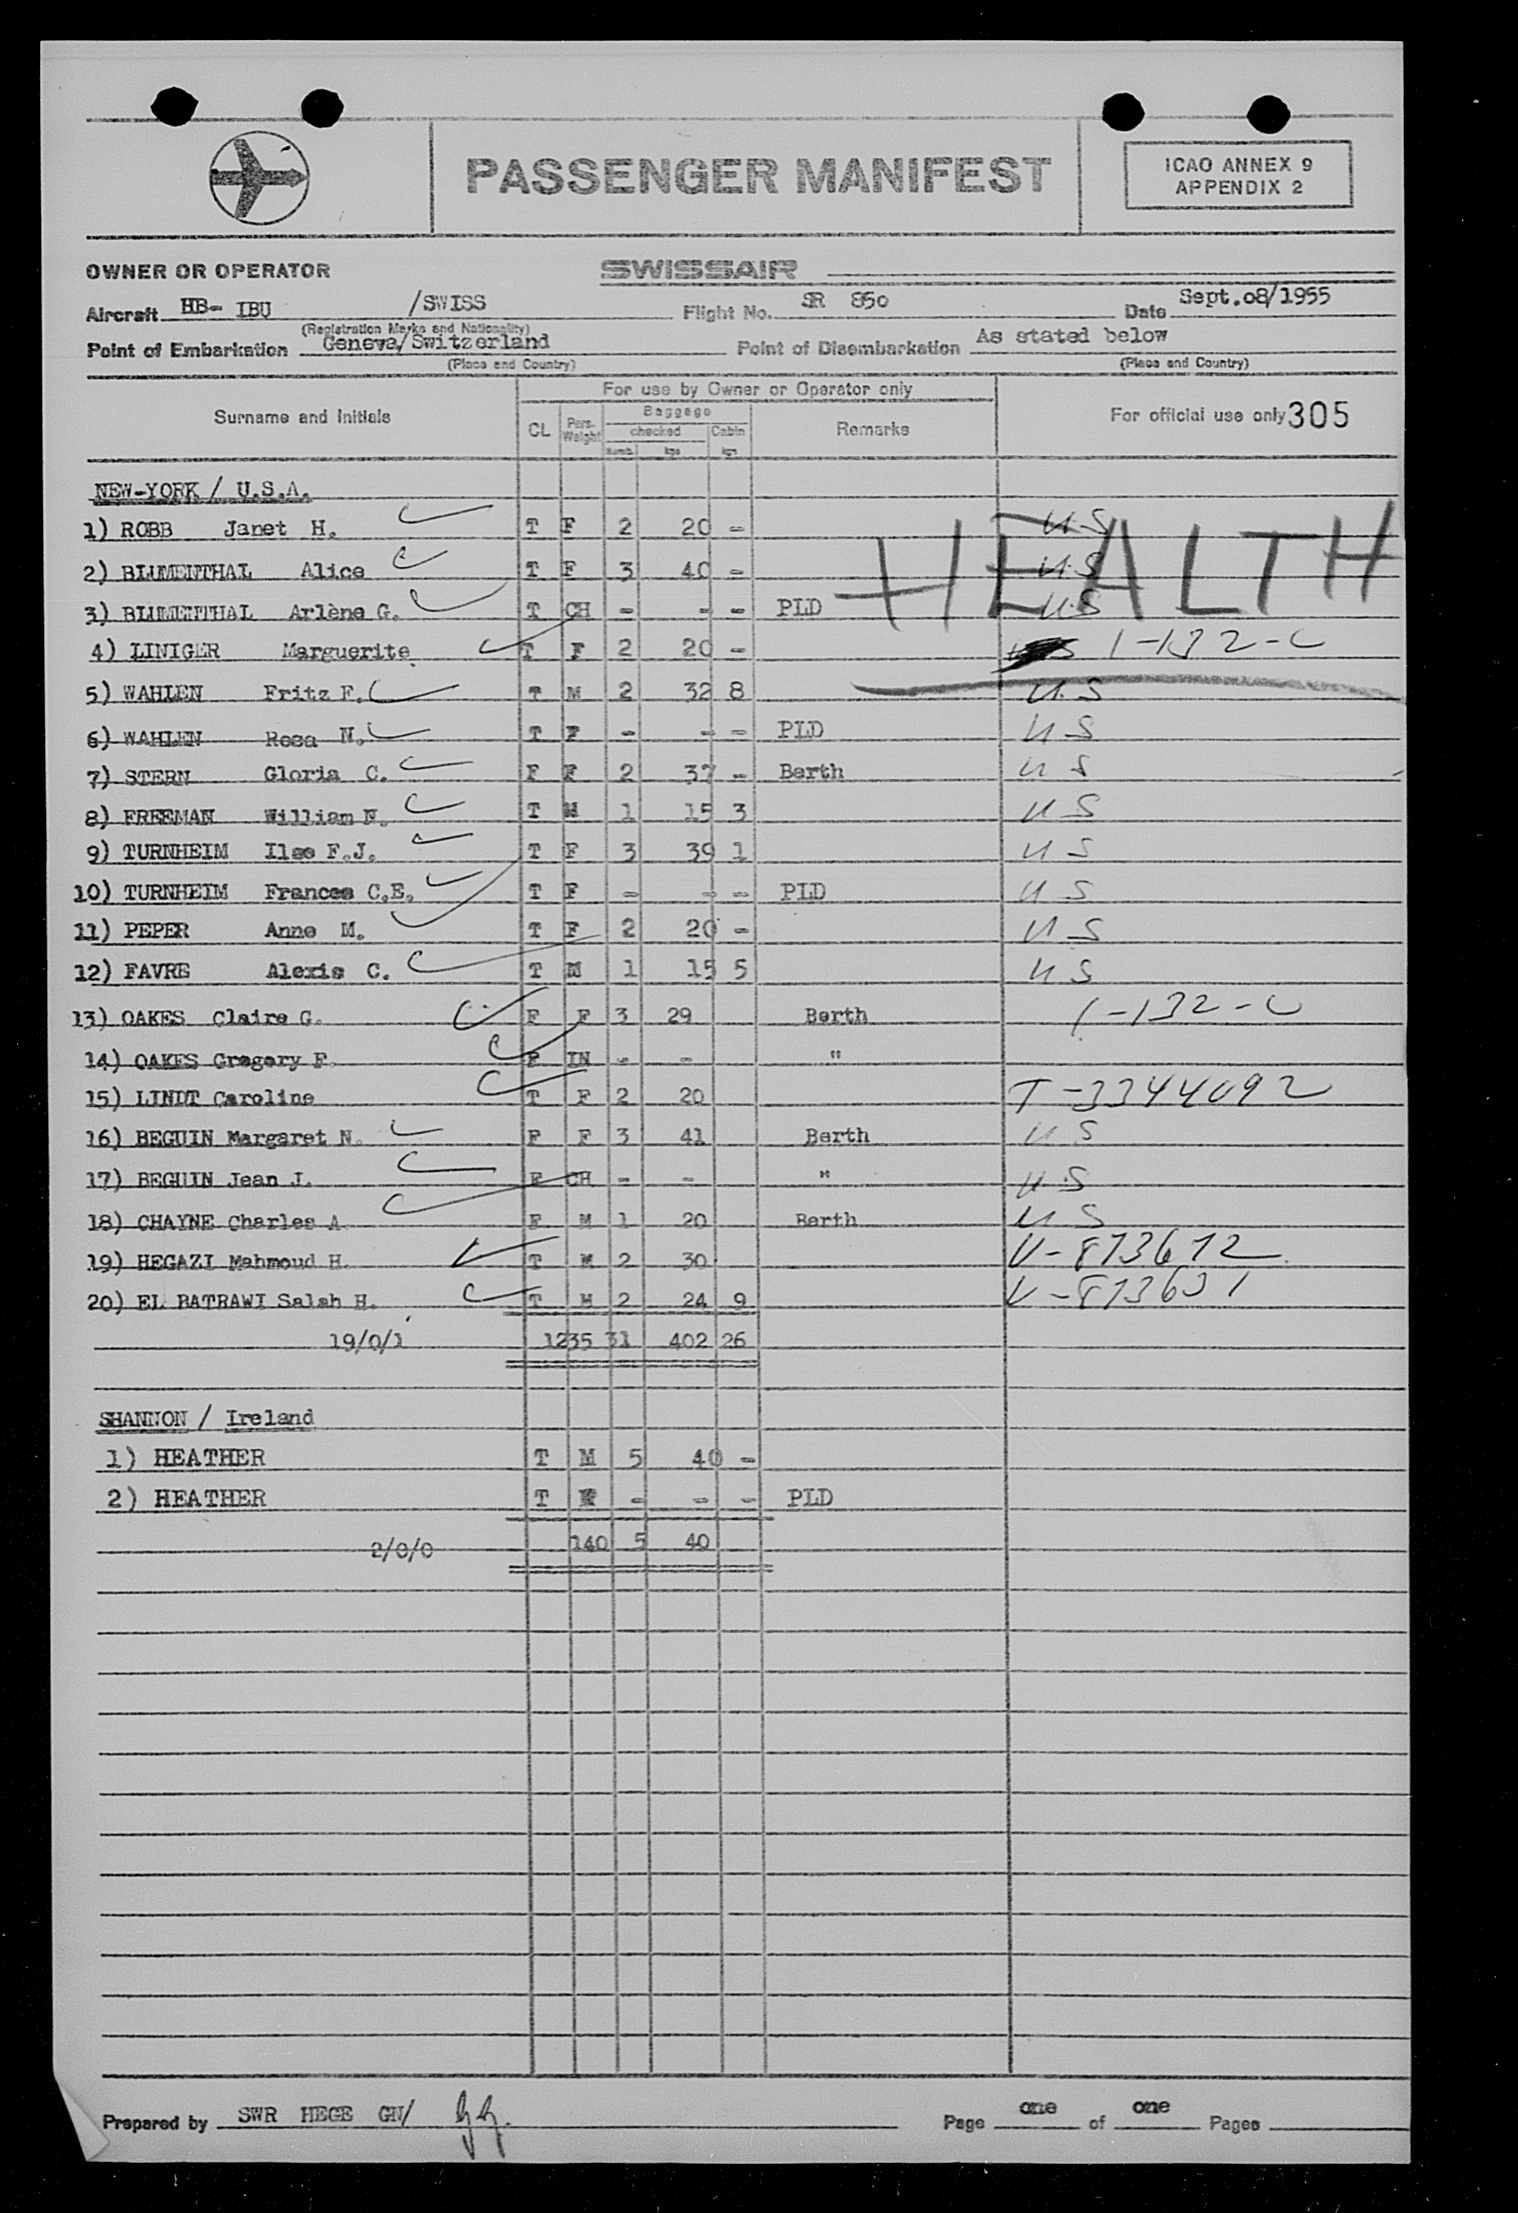 PASSENGER MANIFEST
ICAO ANNEX 9
APPENDIX 2
OWNER OR OPERATOR SWISSAIR
Aircraft HB- IBU /SWISS Flight No. SR 850 Date Sept.08/1955
(Registration Marks and Nationality)
Point of Embarkation Geneva/Switzerland Point of Disembarkation As stated below
(Place and Country) (Place and Country)
For use by Owner or Operator only
Surname and Initials CL Pars. Weight Baggage checked Cabin Remarks For official use only 305
Numb. kgs kgs
NEW-YORK / U.S.A.
HEALTH
1) ROBB Janet H. T F 2 20 - U S
2) BLUMENTHAL Alice T F 3 40 - U.S
3) BLUMENTHAL Arlène G. T CH - - - PLD U.S
4) LINIGER Marguerite T F 2 20 - 1-132-C
5) WAHLEN Fritz F. T M 2 32 8 U.S
6) WAHLEN Rosa N. T F - - - PLD U S
7) STERN Gloria C. F F 2 37 - Berth U S
8) FREEMAN William N. T M 1 15 3 U S
9) TURNHEIM Ilse F.J. T F 3 39 1 U S
10) TURNHEIM Frances C.E. T F - - - PLD U S
11) PEPER Anne M. T F 2 20 - U S
12) FAVRE Alexis C. T M 1 15 5 U S
13) OAKES Claire G. F F 3 29 Berth 1-132-C
14) OAKES Gregory F. F IN - - "
15) LINDT Caroline T F 2 20 T-3344092
16) BEGUIN Margaret N. F F 3 41 Berth U S
17) BEGUIN Jean J. F CH - - " U.S
18) CHAYNE Charles A. F M 1 20 Berth U S
19) HEGAZI Mahmoud H. T M 2 30 V-873672
20) EL BATRAWI Salah H. T M 2 24 9 V-873631
19/0/1 1235 31 402 26
SHANNON / Ireland
1) HEATHER T M 5 40 -
2) HEATHER T F - - - PLD
2/0/0 140 5 40
Prepared by SWR HEGE GN/ Page one of one Pages